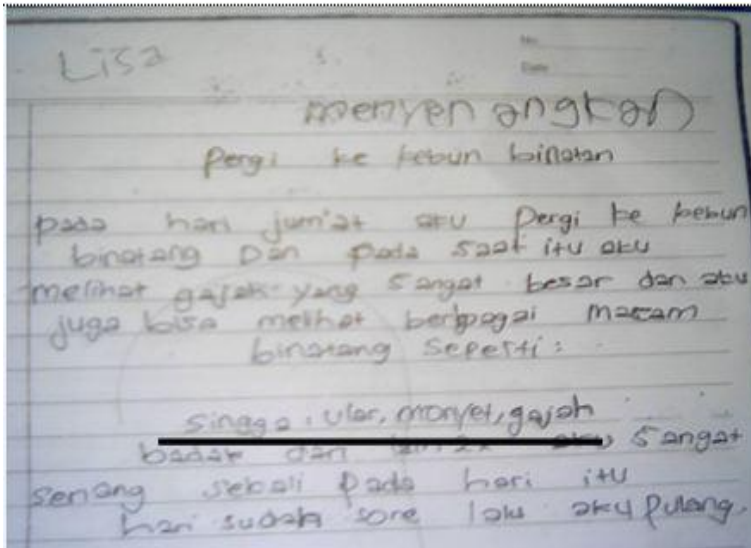 Lisa
No.
Date
menyenangkan
pergi ke kebun binatan
pada hari jum'at aku pergi ke kebun
binatang Dan pada saat itu aku
melihat gajah yang sangat besar dan aku
juga bisa melihat berbagai macam
binatang seperti:
singga, ular, monyet, gajah
badak dan sangat
senang sekali pada hari itu
hari sudah sore lalu aku pulang.